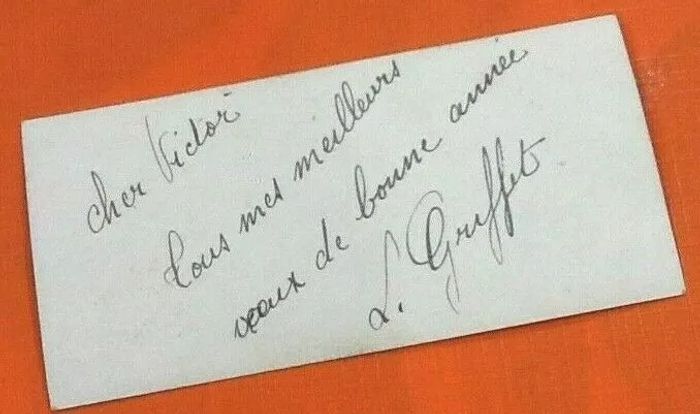 cher Victor
tous mes meilleurs
vœux de bonne année
L. Gruffet